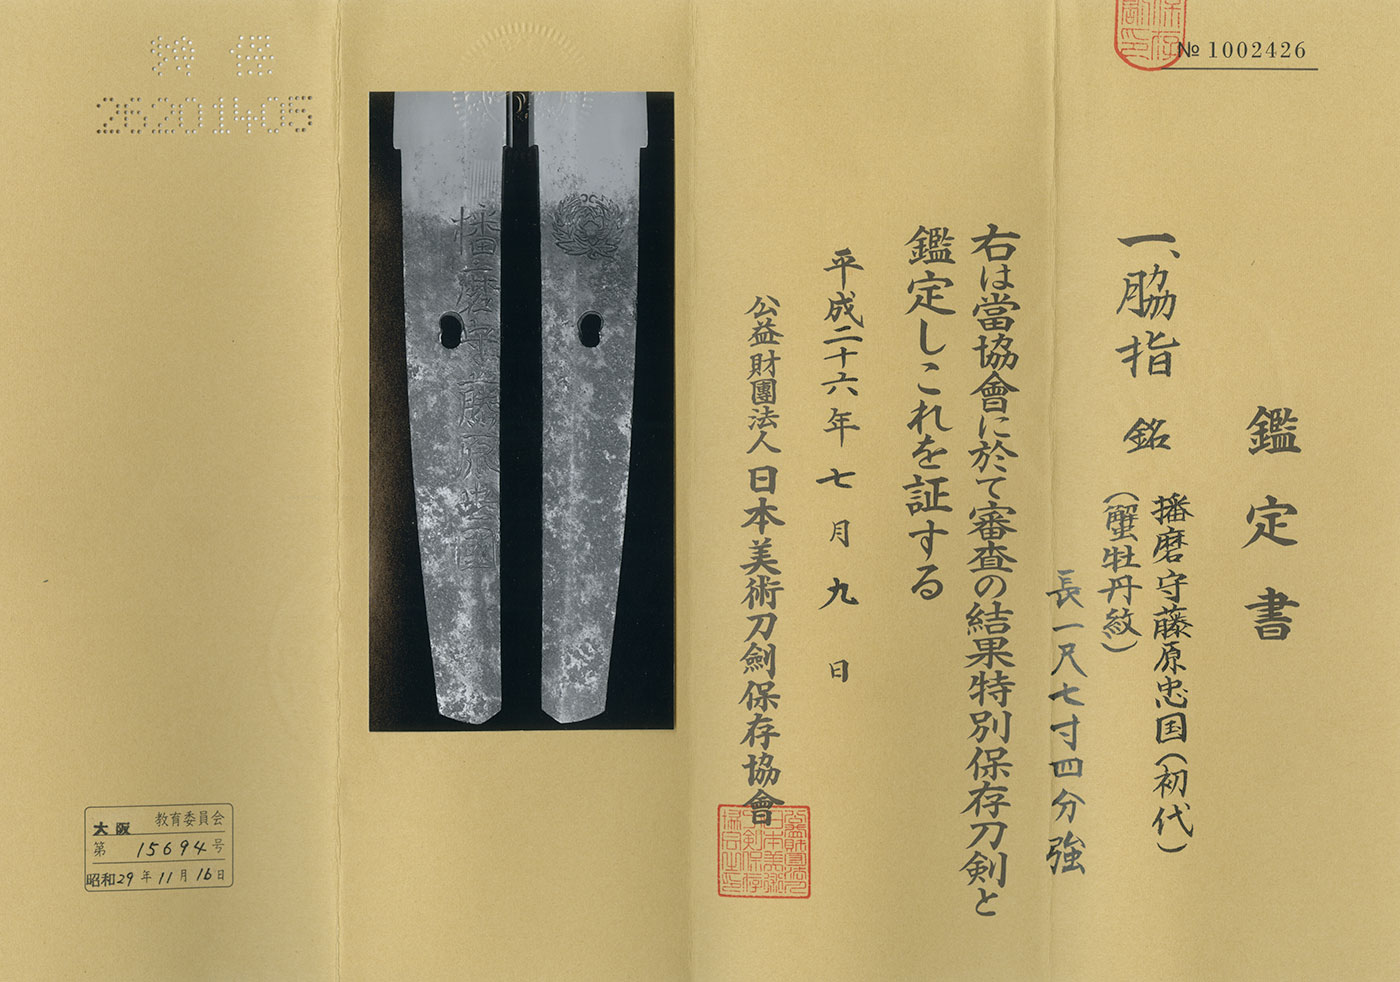 № 1002426
鑑定書
一、脇指 銘 播磨守藤原忠国(初代)
(蟹牡丹紋)
長一尺七寸四分強
右は當協會に於て審査の結果特別保存刀剣と
鑑定しこれを証する
平成二十六年七月九日
公益財團法人日本美術刀劍保存協會
播磨守藤原忠国
特保
26201405
大阪 教育委員会
第 15694 号
昭和29年11月16日